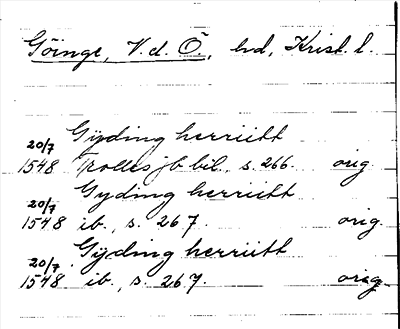 Göinge, V. d. Ö., hd, Krist. l.
20/7 Gÿding herriitt
1548 Trolles jb bil., s. 266. orig.
20/7 Gyding herriitt
1548 ib., s. 267. orig.
20/7 Gÿding herriitt
1548 ib., s. 267. orig.